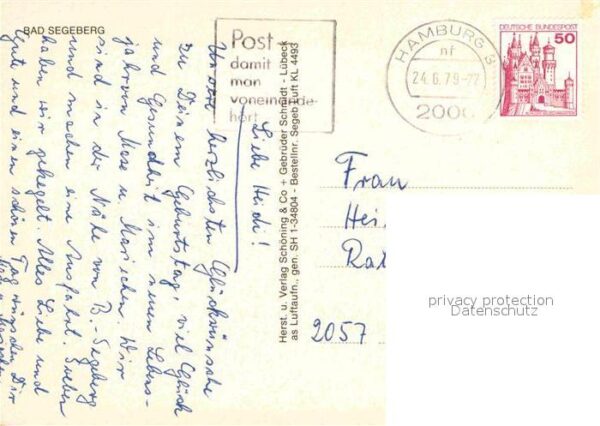 BAD SEGEBERG
Liebe Heidi!
Unsere herzlichsten Glückwünsche
zu Deinem Geburtstag, viel Glück
und Gesundheit im neuen Lebens-
jahr von Mose u. Mariechen. Wir
sind in der Nähe von B.-Segeberg
und machen eine Ausfahrt. Soeben
haben wir gekegelt. Alles Liebe und
Gute und einen schönen Tag wünschen Dir
Post
damit
man
voneinander
hört
HAMBURG
nf
24.6.79-22
2000
DEUTSCHE BUNDESPOST
50
Herst. u. Verlag Schöning & Co + Gebrüder Schmidt - Lübeck
as Luftaufn., gen. SH 1-34804 - Bestellnr. Segeb Luft KL 4493
Frau
Hei
Rat
2057
privacy protection
Datenschutz